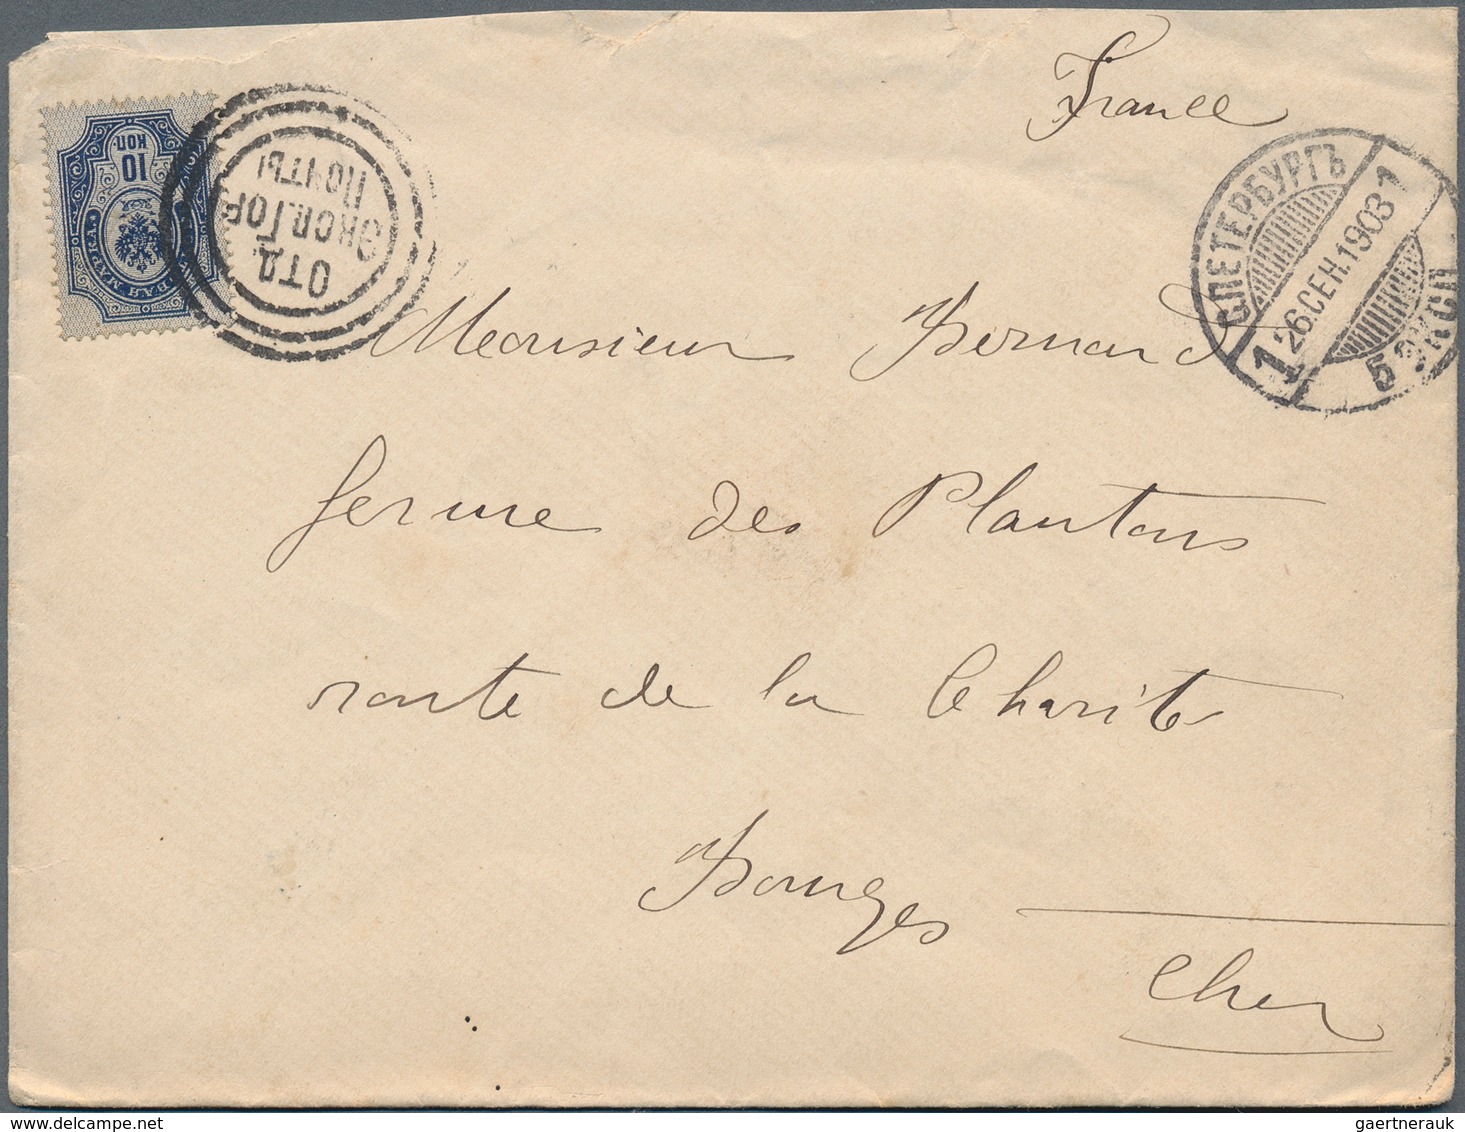 France
10
КОП.
МАРКА.
ОТД.
ЭКСП. ГОР.
ПОЧТЫ
С.ПЕТЕРБУРГЪ
1 26.СЕН.1903 1
5 ЭКСП.
Monsieur Bernard
ferme des Plantons
route de la Charité
Bourges
Cher
gaertnerauk